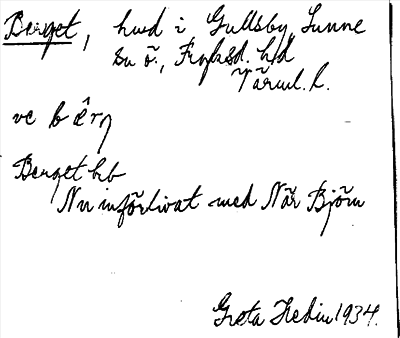 Berget, hmd i Gullsby, Sunne
sn ö., Fryksd. hd
Värml. l.
ve bærj
Berget hb
Nu införlivat med När Björn
Greta Hedin 1934.